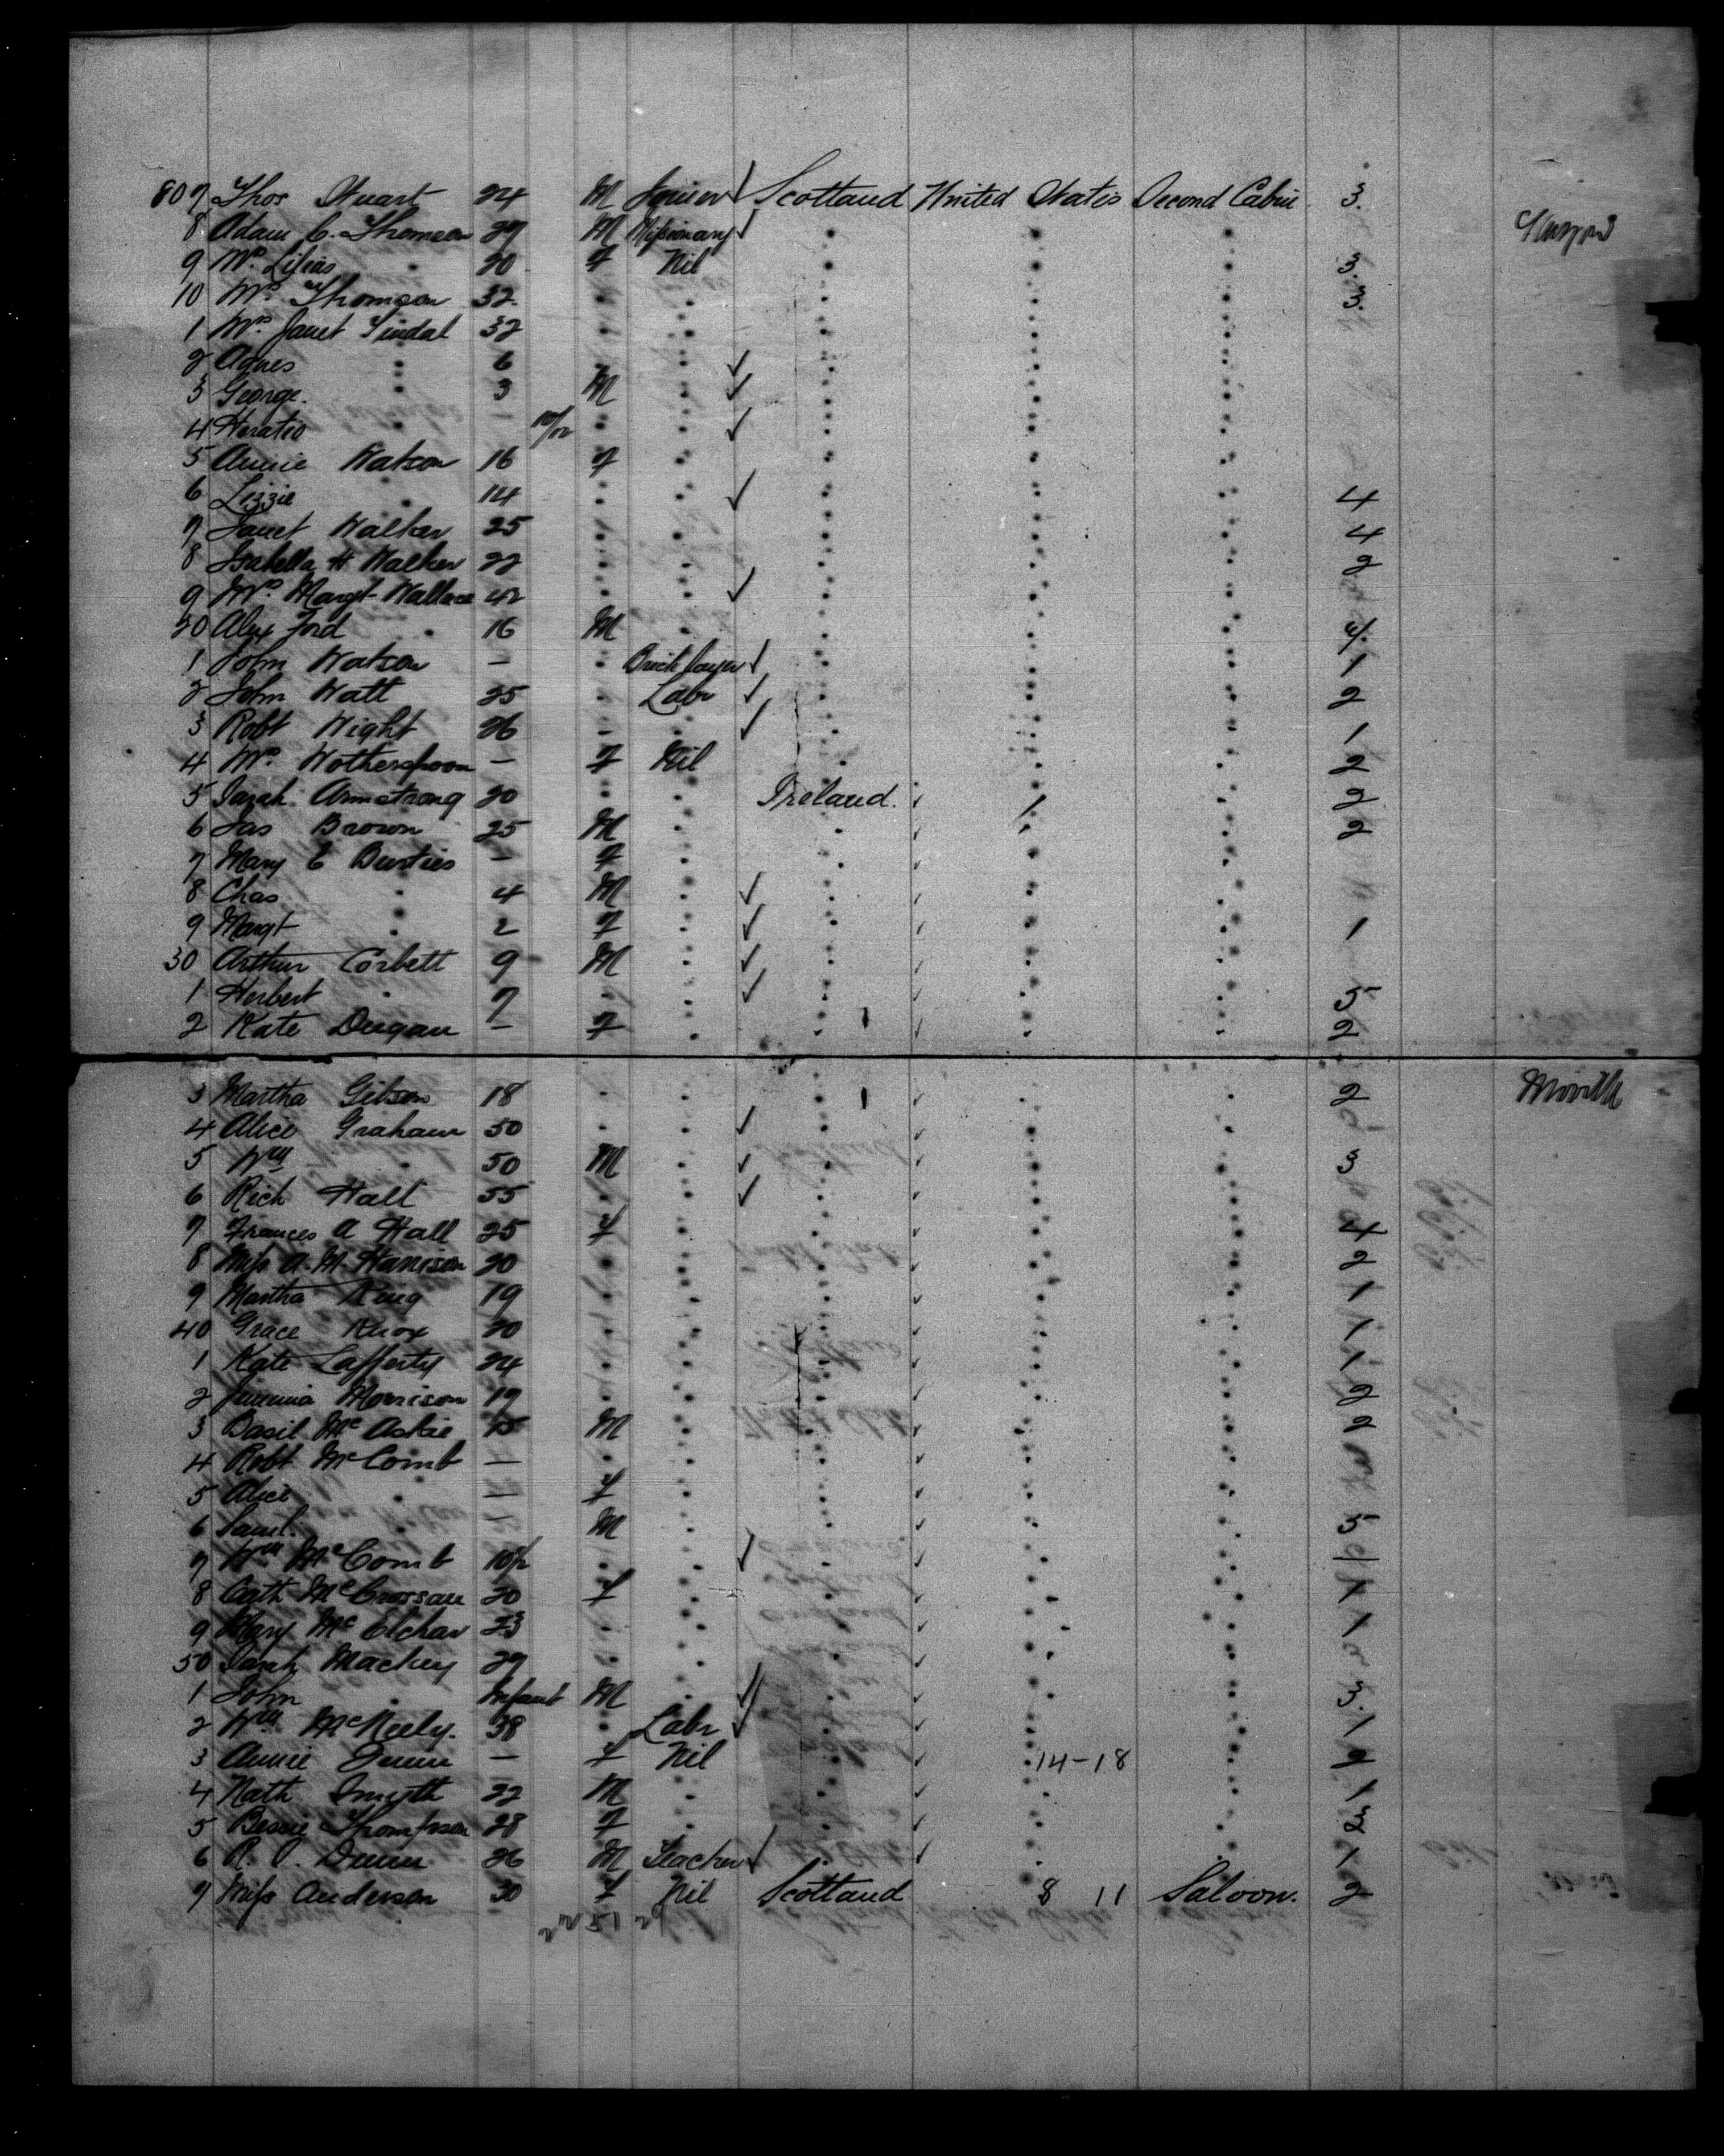 807 Thos Stuart 24 M Joiner Scotland United States Second Cabin 3.
8 Adam C. Thomson 29 M Missionary Glasgow
9 Mrs Lilias 20 f Nil 3.
10 Mrs Thomson 32 3.
1 Mrs Janet Tindal 32
2 Agnes 6
3 George. 3 M
4 Horatio — 10/12
5 Annie Watson 16 f
6 Lizzie 14 4
7 Janet Walker 25 4
8 Isabella H Walker 22 2
9 Mrs Margt Wallace 42
20 Alex Ford 16 M 4.
1 John Watson — Bricklayer 1
2 John Watt 25 Labr 2
3 Robt Wight 26 1
4 Mrs Wotherspoon — f Nil 2
5 Sarah Armstrong 20 Ireland. 2
6 Jas Brown 25 M 2
7 Mary E — f
8 Chas 4 M
9 Margt 2 f 1
30 Arthur Corbett 9 M
1 Herbert 7 5
2 Kate Deigan — f 2
3 Martha Gibson 18 2 Moville
4 Alice Graham 50
5 Wm 50 M 3
6 Rich Hall 55
7 Frances A Hall 25 f 4
8 Miss A. M. Harrison 20 2
9 Martha King 19 1
40 Grace Knox 20 1
1 Kate Lafferty 24 1
2 Jemima Morrison 19 2
3 Basil McAskie 15 M 2
4 Robt McComb —
5 Alice — f
6 Saml. — M 5
7 Wm McComb
8 Cath McCrossan 20 f 1
9 Mary McElchar 23 1
50 Sarah Mackey 29
1 John Infant M 3.
2 Wm McNeely. 38 Labr 1
3 Annie — f Nil 14-18 2
4 Nath Smyth 22 M 1
5 Bessie Thompson 28 f 2
6 R. J. Dunn 26 M Teacher 1
7 Miss Anderson 30 f Nil Scotland 8 11 Saloon. 2